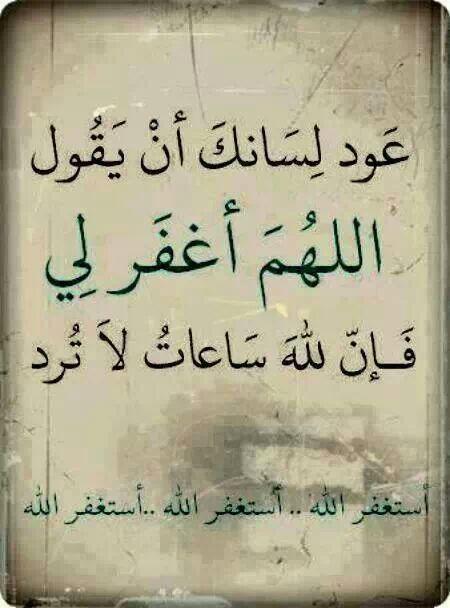 عَود لِسَانكَ أنْ يَقُول
اللهُمَ أغفَر لِي
فَإنّ للهَ سَاعاتُ لاَ تُرد
أستغفر الله .. أستغفر الله ..أستغفر الله